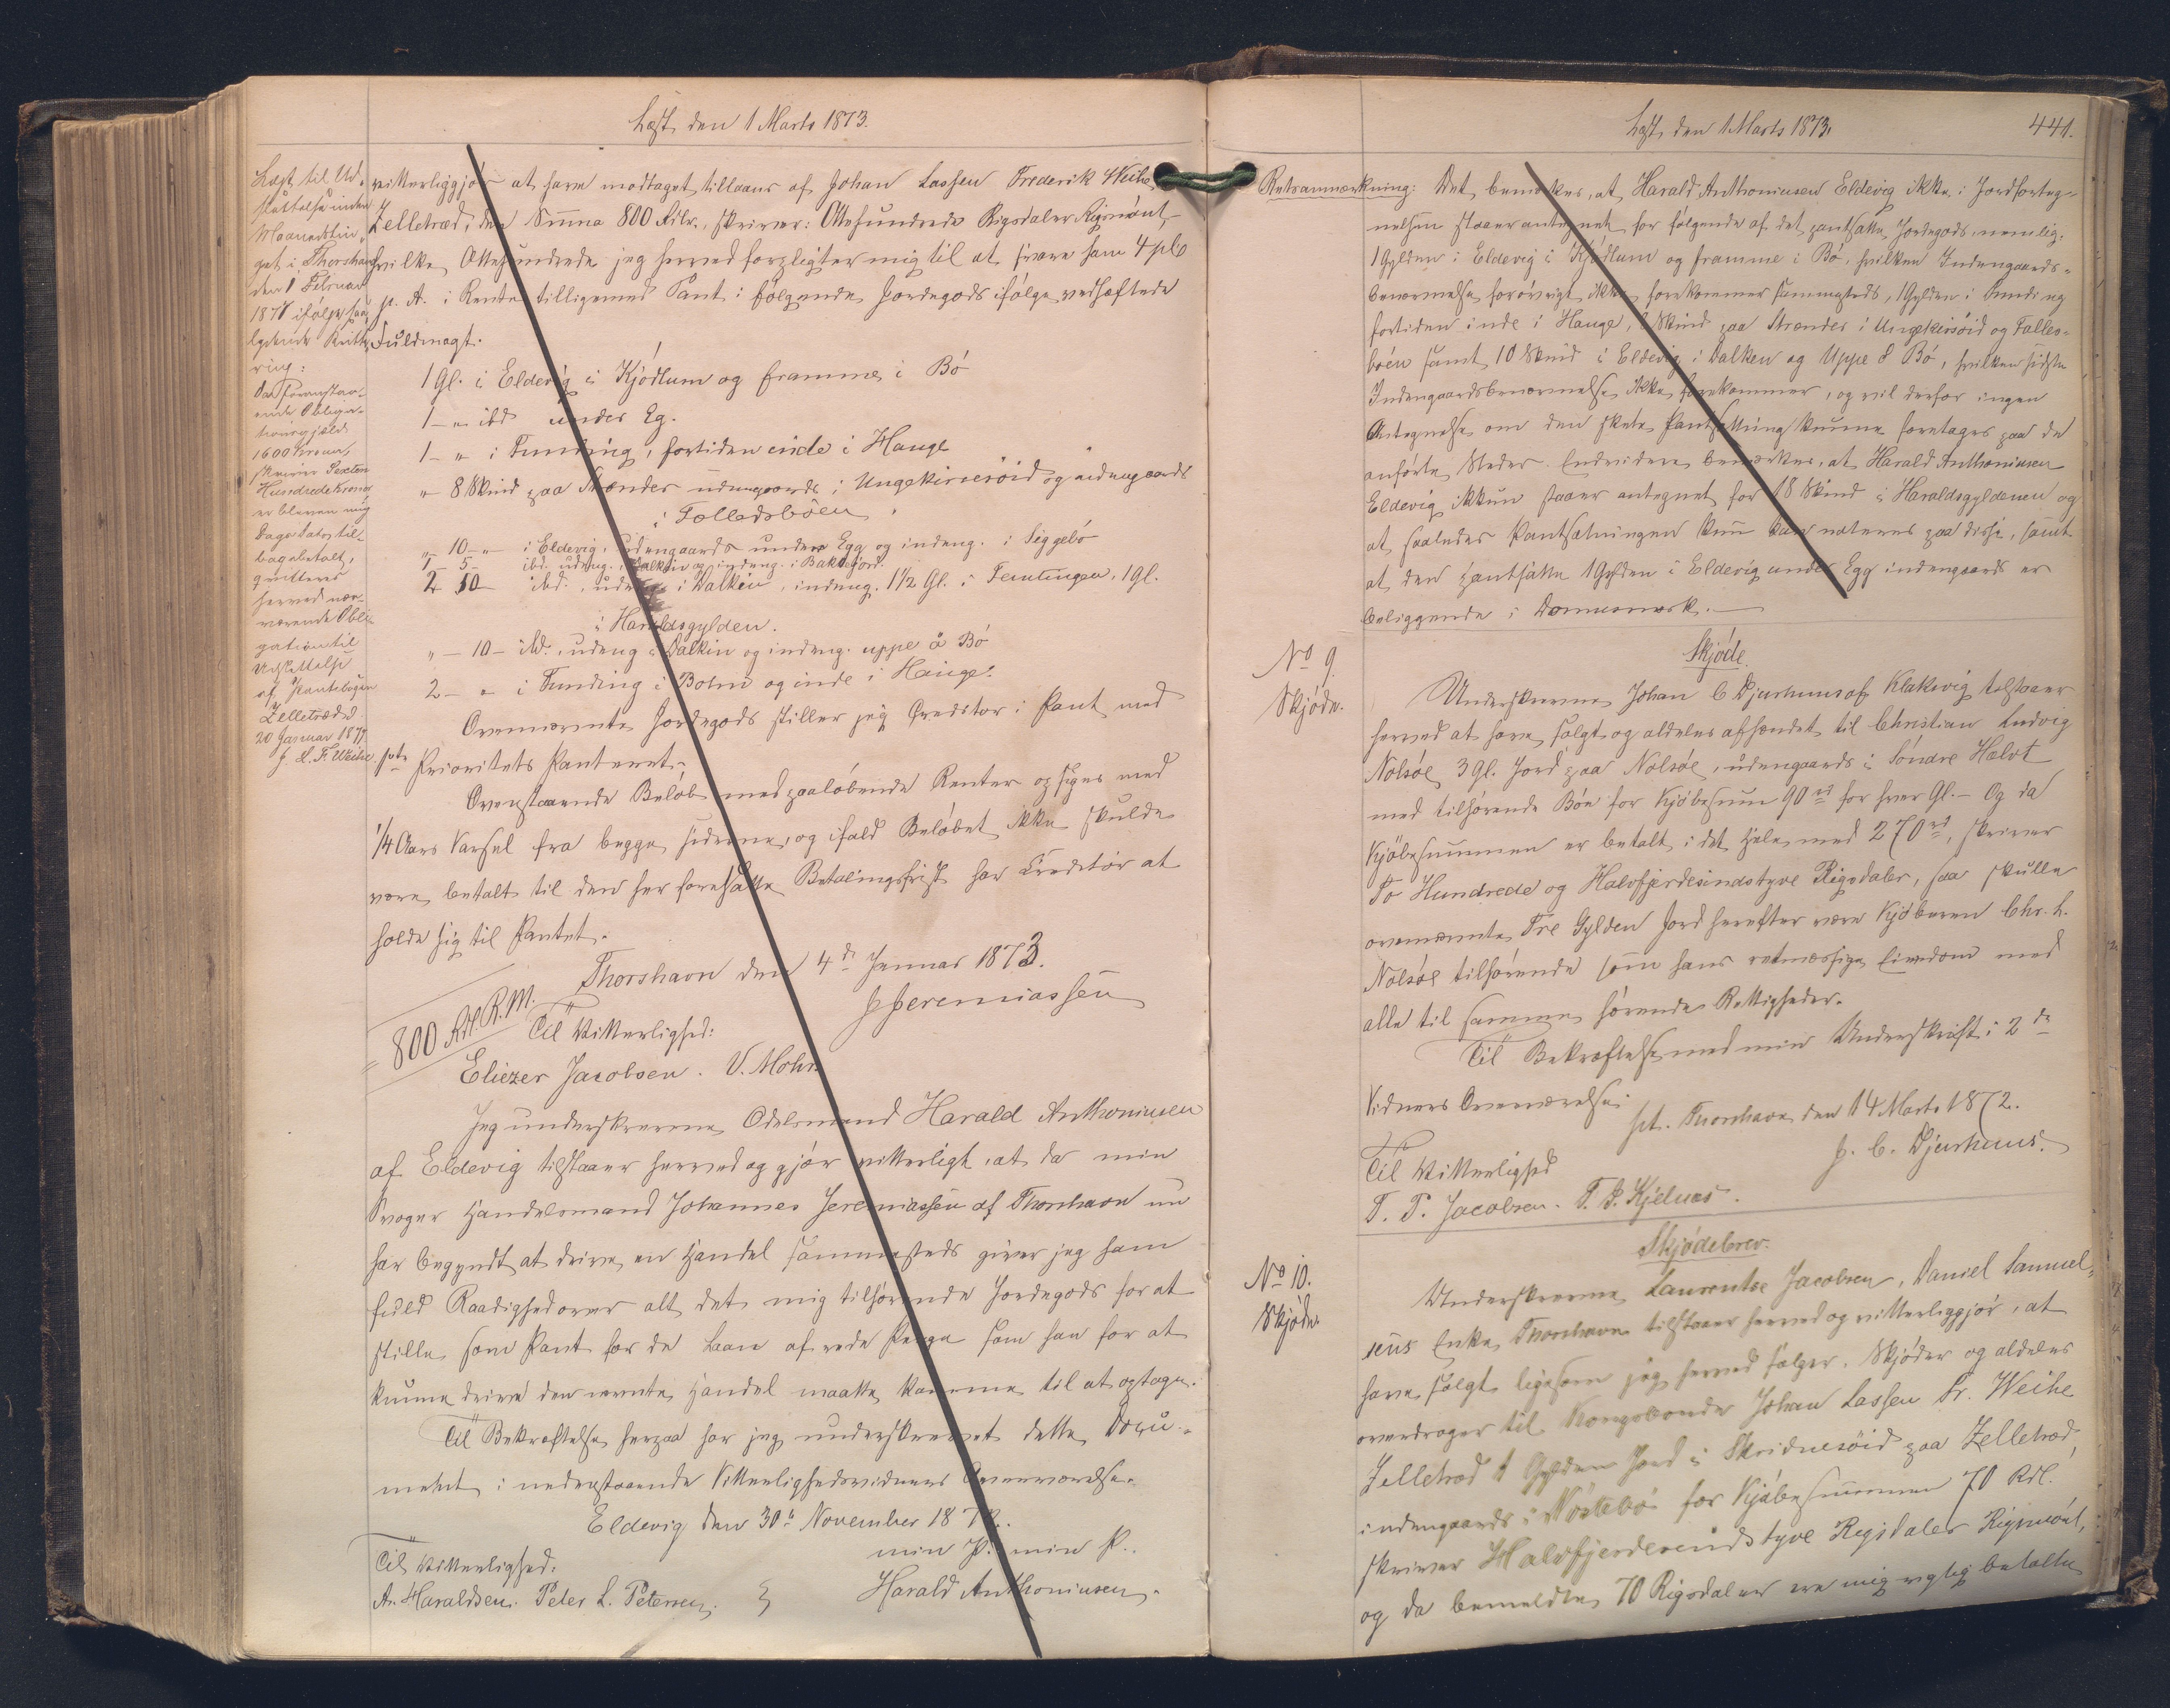 Læst den 1 Marts 1873.
Læst til Ud-
slettelse inden
Maanedsthin-
get i Thorshavn
den 1 Februar
187 ifølge saa
lydende Kvitte
ring:
Da foranstaa-
ende Obliga-
tionsgjæld
1600 Kroner,
skriver Sexten
Hundrede Kroner
er bleven mig
Dags Dato til-
bagebetalt,
qvitteres
herved nær-
værende Obli-
gation til
Udslettelse
af Pantebogen
Zelletræd d
20 Januar 1877
J. L. F. Weihe.
vitterliggjør at have modtaget tillaans af Johan Lassen Frederik Weihe
Zelletræd, den Summa 800 Rdlr., skriver: Ottehundrede Rigsdaler Rigsmønt,
hvilke Ottehundrede jeg herved forpligter mig til at svare ham 4 pCto
p. A. i Rente tilligemed Pant i følgende Jordegods ifølge vedhæftede
Fuldmagt.
1 Gl. i Eldevig i Kjødlum og framme i Bø
1 - " ibd under Eg.
1 - " i Funding, fortiden inde i Hauge
" 8 Skind paa Strænder udengaards i Ungekirsesøid og indengaards
i Fælledsbøen.
" 10 - " i Eldevig, udengaards under Egg og indeng. i Siggebø
1 - 5 - ibd. udeng. i Dalkin og indeng. i Bakkejord.
2 10 - ibd., udeng. i Dalkin, indeng. 1 1/2 Gl. i Temtingen, 1 Gl.
i Haraldsgylden.
" - 10 - ibd., udeng i Dalkin og indeng. uppe å Bø
2 - " i Funding i Botni og inde i Hauge.
Ovennævnte Jordegods stiller jeg Creditor i Pant med
1ste Prioritets Panteret.
Ovenstaaende Beløb med paaløbende Renter opsiges med
1/4 Aars Varsel fra begge Siderne, og ifald Beløbet ikke skulde
være betalt til den her forehatte Betalingsfrist har Creditor at
holde sig til Pantet.
Thorshavn den 4de Januar 1873.
800 Rdl. R.M.
J Jeremiassen
Til Vitterlighed:
Eliezer Jacobsen. V. Mohr.
Jeg underskrevne Odelsmand Harald Anthoniusen
af Eldevig tilstaaer herved og gjør vitterligt, at da min
Svoger Handelsmand Johannes Jeremiassen af Thorshavn nu
har begyndt at drive en Handel sammesteds giver jeg ham
fuld Raadighed over alt det mig tilhørende Jordegods for at
stille som Pant for de Laan af rede Penge som han for at
kunne drive den nævnte Handel maatte komme til at optage.
Til Bekræftelse herpaa har jeg underskrevet dette Docu-
ment i nedenstaaende Vitterlighedsvidners Overværelse.
Eldevig den 30te November 1872.
min P. min P..
Til Vitterlighed:
Harald Anthoniusen.
A. Haraldsen. Peter L. Petersen.
Læst den 1 Marts 1873.
441.
Retsanmærkning: Det bemærkes, at Harald Anthoniusen Eldevig ikke i Jordforteg-
nelsen staaer antegnet for følgende af det pantsatte Jordegods, nemlig:
1 Gylden i Eldevig i Kjødlum og framme i Bø, hvilken Indengaards-
benævnelse forøvrigt ikke forekommer sammesteds, 1 Gylden i Funding
fortiden inde i Hauge, 8 Skind paa Strænder i Ungekirsøid og Falles-
bøen samt 10 Skind i Eldevig i Dalken og Uppe å Bø, hvilken sidste
Indengaardsbenævnelse ikke forekommer, og vil derfor ingen
Antegnelse om den skete Pantsætning kunne foretages paa de
anførte Steder. Endvidere bemærkes, at Harald Anthoniusen
Eldevig ikkun staaer antegnet for 18 Skind i Haraldsgyldenen og
at saaledes Pantsætningen kun kan noteres paa disse, samt
at den pantsatte 1 Gylden i Eldevig under Egg indengaards er
beliggende i Dammemork.
No 9.
Skjøde.
Skjøde.
Underskrevne Johan C Djurhuus af Klaksvig tilstaaer
herved at have solgt og aldeles afhændet til Christian Ludvig
Nolsøe 3 Gl. Jord paa Nolsøe, udengaards i Søndre Halvt
med tilhørende Bøe for Kjøbesum 90 rd for hver Gl. - Og da
Kjøbesummen er betalt i det Hele med 270 rd, skriver
To Hundrede og Halvfjerdesindstyve Rigsdaler, saa skulle
ovennævnte Tre Gylden Jord herefter være Kjøberen Chr. L.
Nolsøe tilhørende som hans retmæssige Eiendom med
alle til samme hørende Rettigheder.
Til Bekræftelse med min Underskrift i 2de
Vidners Overværelse.
pt. Thorshavn den 14 Marts 1872.
J. C. Djurhuus.
Til Vitterlighed
T. P. Jacobsen. T. P. Kjelnæs.
No 10.
Skjøde.
Skjødebrev.
Underskrevne Laurentse Jacobsen, Daniel Samuel-
sens Enke, Thorshavn tilstaaer herved og vitterliggjør, at
have solgt ligesom jeg herved sælger, Skjøder og aldeles
overdrager til Kongsbonde Johan Lassen Fr. Weihe
Zelletræd 1 Gylden Jord i Skridnesøid paa Zelletræd,
indengaards i Nørdbø for Kjøbesummen 70 Rdl.
skriver Halvfjerdesindstyve Rigsdaler Rigsmønt,
og da bemeldte 70 Rigsdaler ere mig rigtig betalte